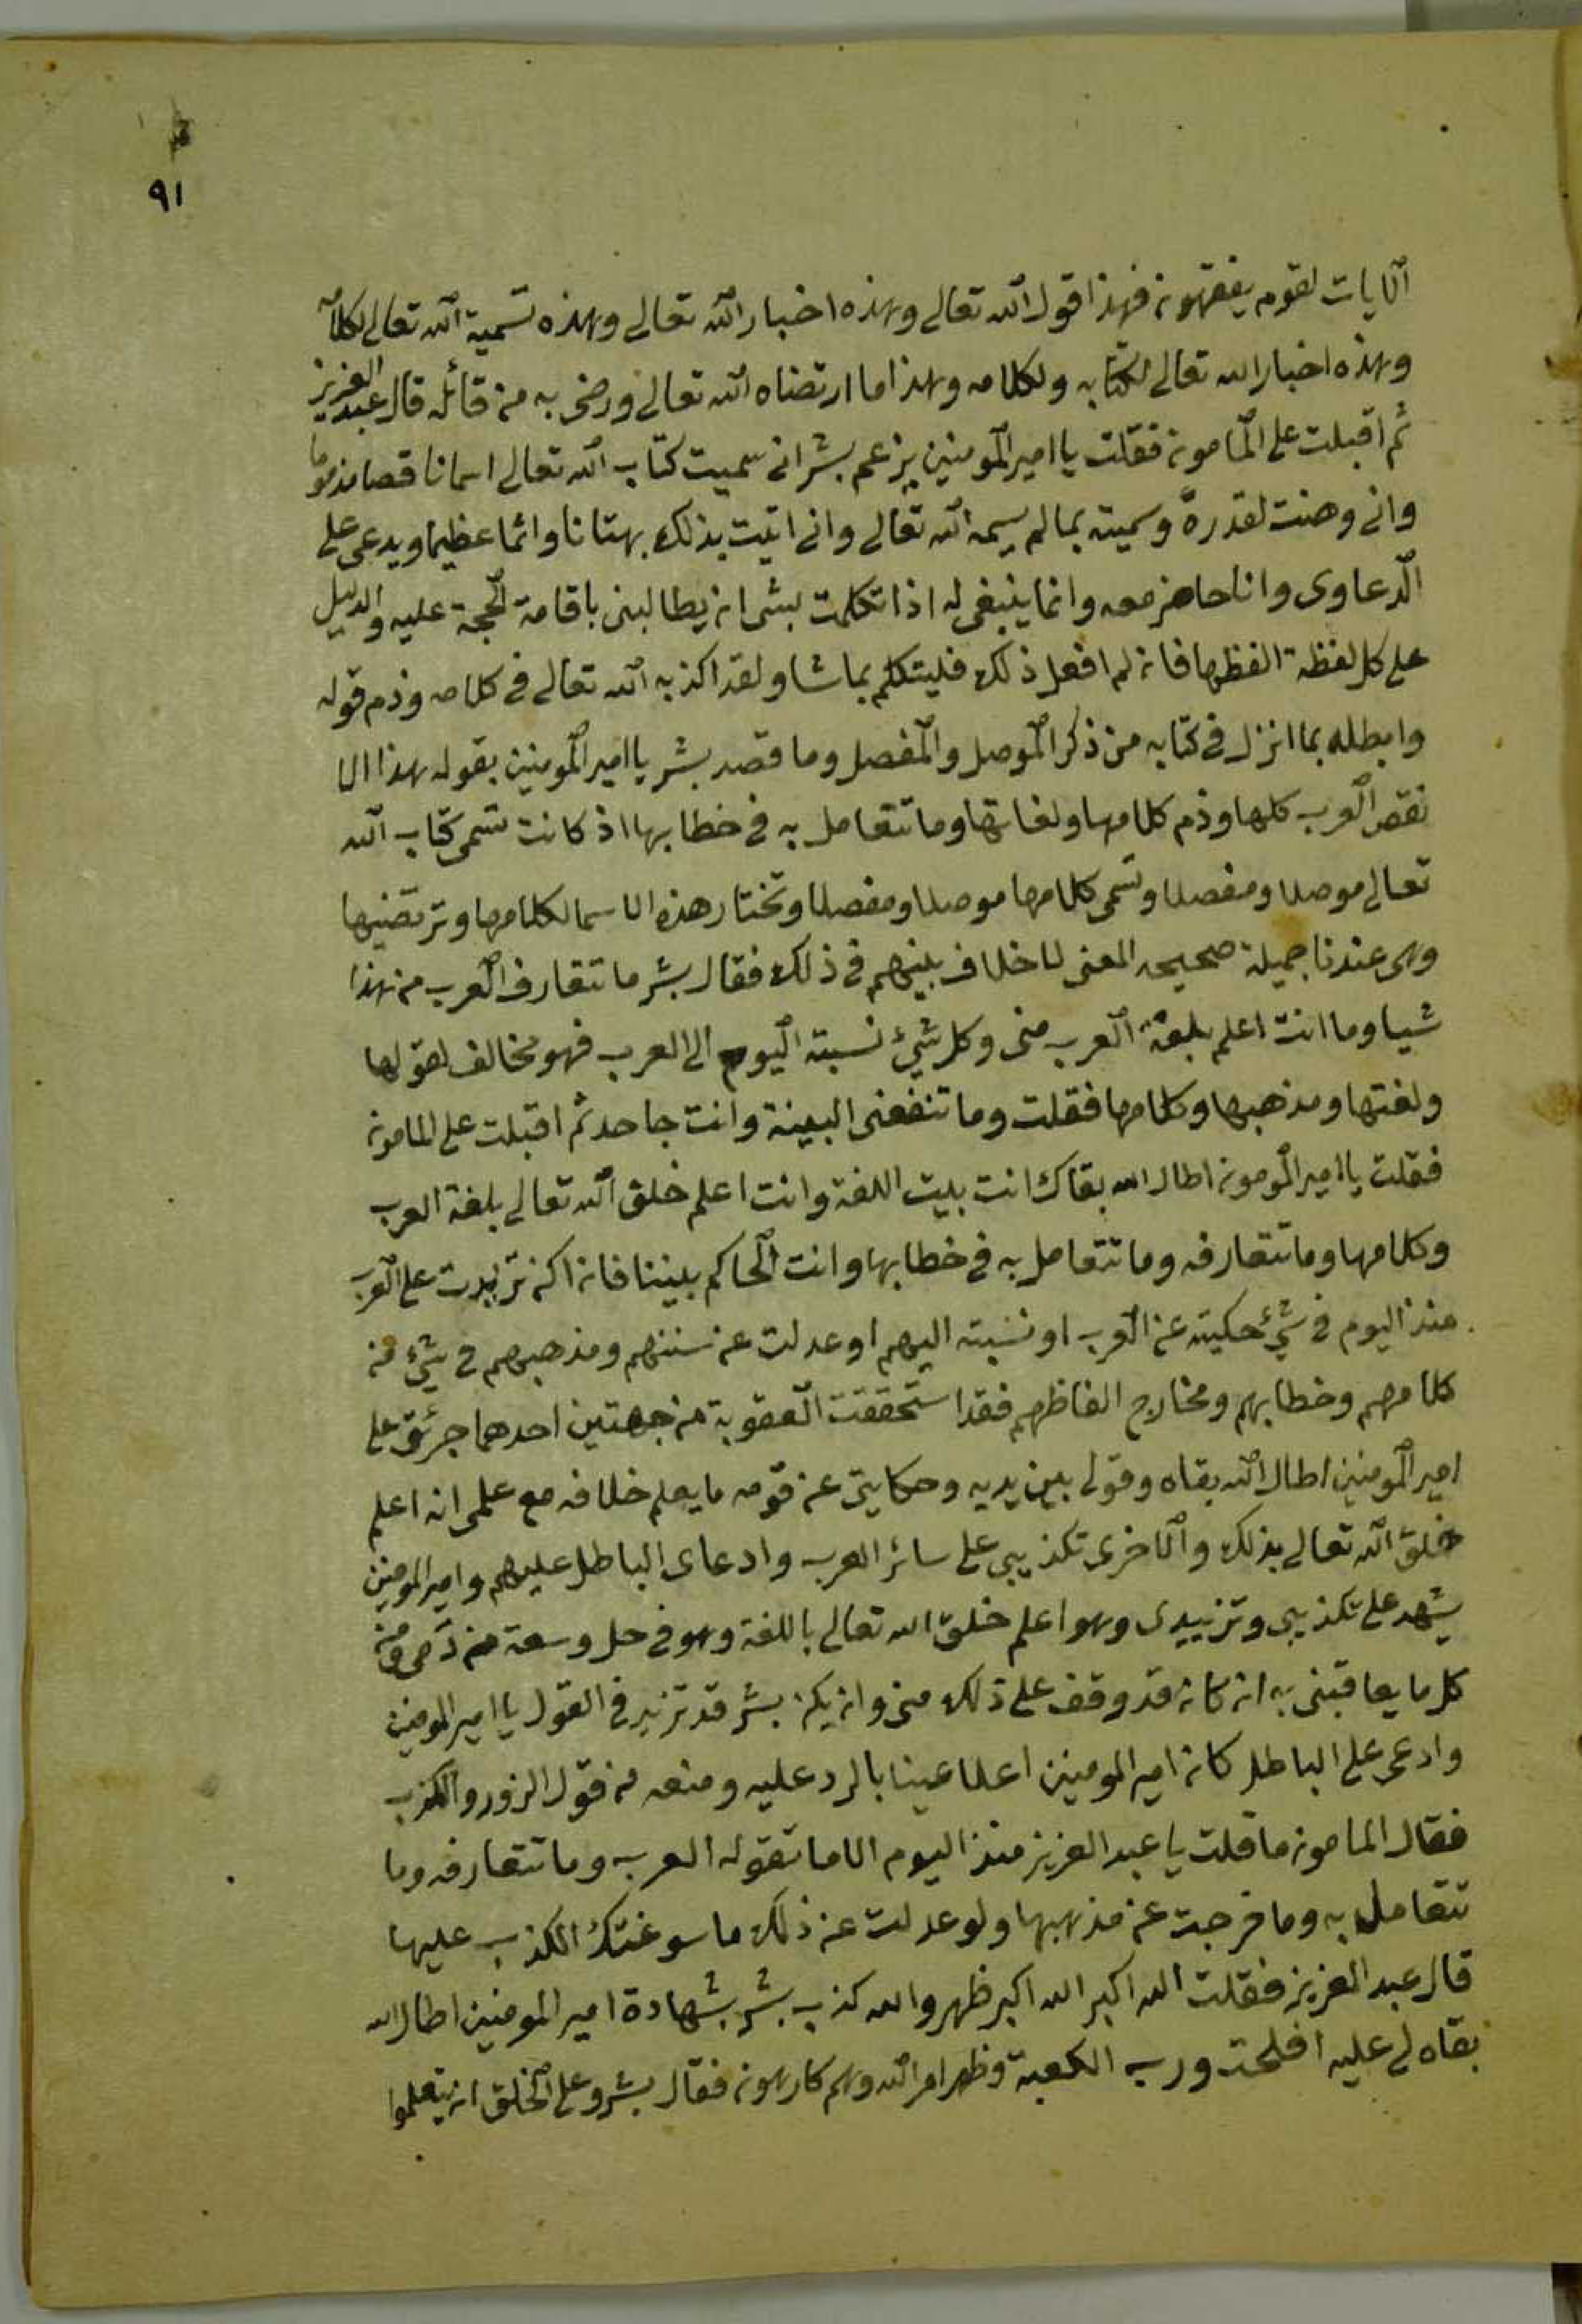 ٩١
الايات لقوم يفقهون فهذا قول الله تعالى وهذه اخبار الله تعالى وهذه تسمية الله تعالى لكلامه
وهذه اخبار الله تعالى لكتابه ولكلامه وهذا ما ارتضاه الله تعالى ورضى به من قائله قال عبد العزيز
ثم اقبلت على المامون فقلت يا امير المومنين يزعم بشر انى سميت كتاب الله تعالى اسما ناقصا مذموما
وانى وهنت لقدره وسميته بمالم يسمه الله تعالى وانى اتيت بذلك بهتانا واثما عظيما ويدعى على
الدعاوى وانا حاضر معه وانما ينبغى له اذا تكلمت بشى ان يطالبنى باقامة الحجة عليه والدليل
على كل لفظة الفظها فان لم افعل ذلك فليتكلم بماشا ولقد اكذبه الله تعالى فى كلامه وذم قوله
وابطله بما انزل فى كتابه من ذكر الموصل والمفصل وما قصد بشر يا امير المومنين بقوله هذا الا
نقص العرب كلها وذم كلامها ولغاتها وما تتعامل به فى خطابها اذ كانت تسمى كتاب الله
تعالى موصلا ومفصلا وتسمى كلامها موصلا ومفصلا وتختار هذه الاسما لكلامها وترتضيها
وهى عندنا جميلة صحيحه المعنى لا خلاف بينهم فى ذلك فقال بشر ما تتعارف العرب من هذا
شيا وما انت اعلم بلغة العرب منى وكل شيئ نسبته اليوم الى العرب فهو مخالف لقولها
ولغتها ومذهبها وكلامها فقلت وما تنفعنى البينة وانت جاحد ثم اقبلت على المامون
فقلت يا امير المومون اطال الله بقاك انت بيت اللغة وانت اعلم خلق الله تعالى بلغة العرب
وكلامها وما تتعارفه وما تتعامل به فى خطابها وانت الحاكم بيننا فان اكن تزيدت على العرب
منذ اليوم فى شيئ حكيته عن العرب او نسبته اليهم او عدلت عن سننهم ومذهبهم فى شيئ من
كلامهم وخطابهم ومخارج الفاظهم فقد استحققت العقوبة من جهتين احدهما جرئتى على
امير المومنين اطال الله بقاه وقولى بين يديه وحكايتى عن قومه ما يعلم خلافه مع علمى انه اعلم
خلق الله تعالى بذلك والاخرى تكذيبى على سائر العرب وادعاى الباطل عليهم وامير المومنين
يشهد على تكذيبى وتزييدى وهو اعلم خلق الله تعالى باللغة وهو فى حل وسعة من دمى ومن
كل ما يعاقبنى به ان كان قد وقف على ذلك منى وان يكن بشر قد تزيد فى القول يا امير المومنين
وادعى على الباطل كان امير المومنين اعلا عينا بالرد عليه ومنعه من قول الزور والكذب
فقال المامون ما قلت يا عبد العزيز منذ اليوم الا ما تقوله العرب وما تتعارفه وما
تتعامل به وما خرجت عن مذهبها ولو عدلت عن ذلك ما سوغتك الكذب عليها
قال عبد العزيز فقلت الله اكبر الله اكبر ظهر والله كذب بشر بشهادة امير المومنين اطال الله
بقاه لى عليه افلحت ورب الكعبة وظهر امر الله وهم كارهون فقال بشر وعلى الخلق ان يتعلموا